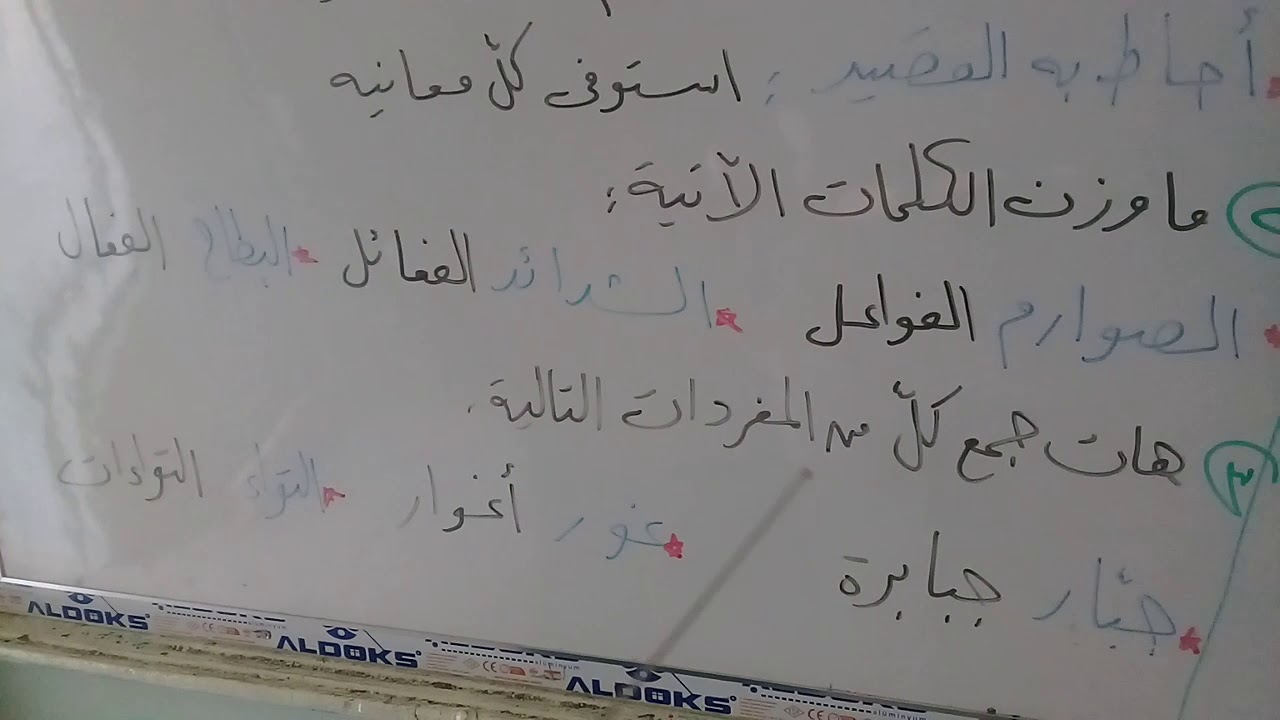 أحاط به القصيد : استوفى كلّ معانيه
ما وزن الكلمات الآتية :
الصوارم الفواعل الشدائد الفعائل البطاح الفعال
٣ هات جمع كلّ من المفردات التالية .
جبّار جبابرة غور أغوار التواء التواءات
ALOOKS ALOOKS ALOOKS